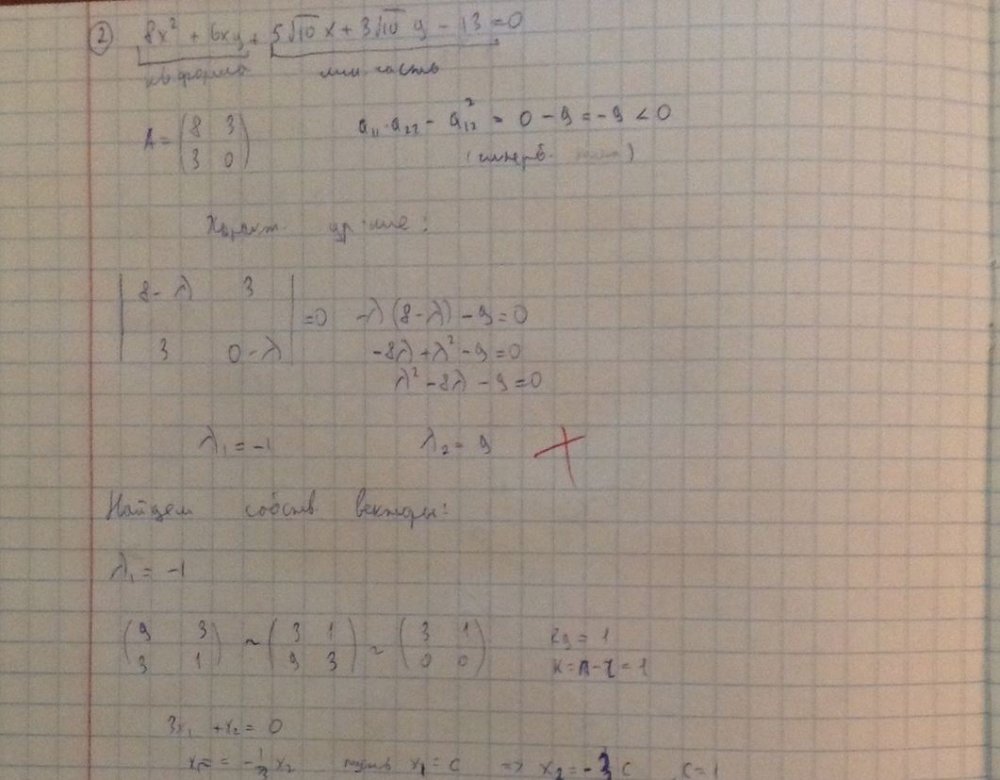 ② 8x² + 6xy + 5√10 x + 3√10 y - 13 = 0
кв форма лин часть
A = (8 3
3 0)
a₁₁·a₂₂ - a₁₂² = 0 - 9 = -9 < 0
(гиперб.
Характ. ур-ние:
|8-λ 3
3 0-λ| = 0
-λ(8-λ) - 9 = 0
-8λ + λ² - 9 = 0
λ² - 8λ - 9 = 0
λ₁ = -1 λ₂ = 9
Найдем собств векторы:
λ₁ = -1
(9 3 ~ (3 1 ~ (3 1 Rg = 1
3 1) 9 3) 0 0) K = n - r = 1
3x₁ + x₂ = 0
x₁ = -1/3 x₂ x₁ = c => x₂ = -3c, c = 1